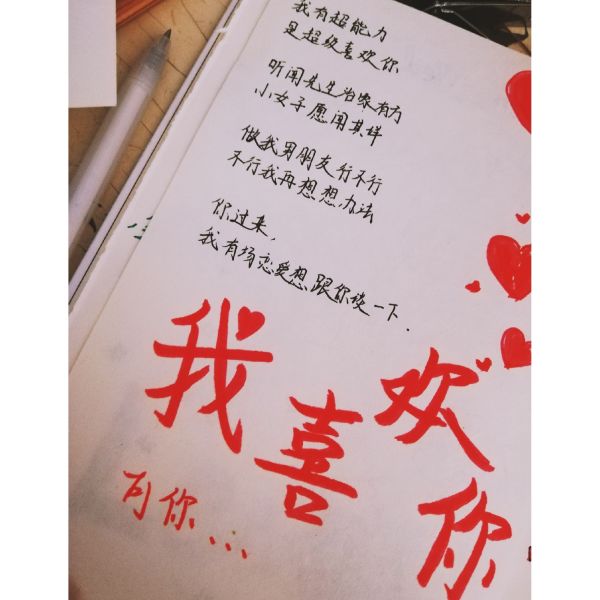 我有超能力
是超级喜欢你
听闻先生治家有方
小女子愿闻其详
做我男朋友行不行
不行我再想想办法
你过来，
我有场恋爱想跟你谈一下.
我喜欢你
可你...